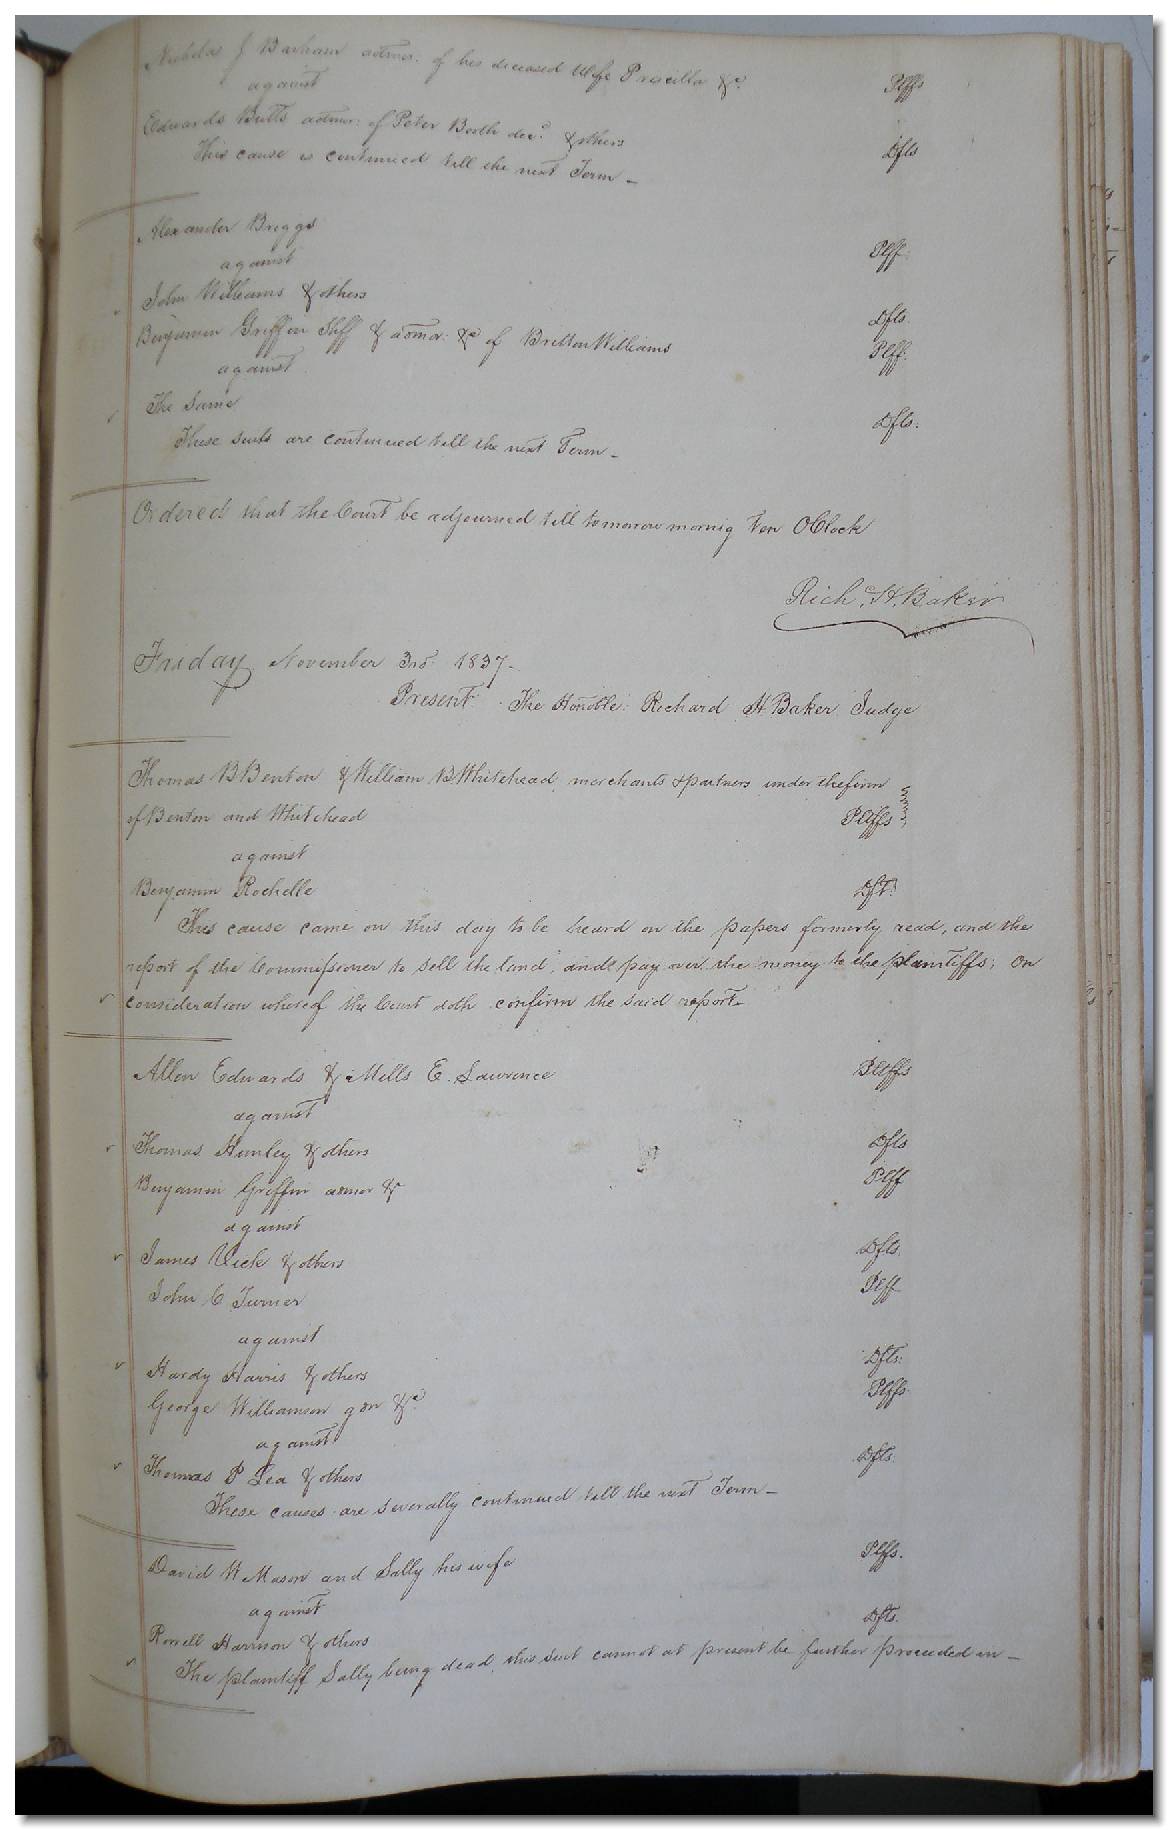 Nicholas J Barham admor: of his deceased Wife Priscilla &c. Plffs
against
Edwards Butts admor: of Peter Booth decd. & others Dfts
This cause is continued till the next Term –
Alexander Briggs Plff:
against
John Williams & others Dfts.
Benjamin Griffin Shff & admor: &c of Britton Williams Plff:
against
The Same Dfts:
These suits are continued till the next Term –
Ordered that the Court be adjourned till tomorrow mornig Ten OClock
Rich. H. Baker
Friday November 3rd: 1837.
Present: The Honble: Richard H Baker Judge
Thomas B Benton & William B Whitehead, merchants & partners under the firm
of Benton and Whitehead Plffs
against
Benjamin Rochelle Dft:
This cause came on this day to be heard on the papers formerly read, and the
report of the Commissioner to sell the land, and pay over the money to the plaintiffs; On
consideration whereof the Court doth confirm the said report –
Allen Edwards & Mills E. Lawrence Plffs
against
Thomas Hunley & others Dfts
Benjamin Griffin admor &c Plff
against
James Vick & others Dfts.
John C Turner Plff
against
Hardy Harris & others Dfts:
George Williamson gdn &c. Plffs.
against
Thomas P Lea & others Dfts.
These causes are severally continued till the next Term –
David W Mason and Sally his wife Plffs.
against
Harrison & others Dfts.
The plaintiff Sally being dead, this suit cannot at present be further proceeded in –